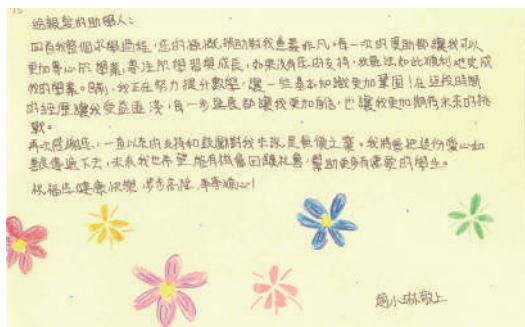 給親愛的助學人：
回首我整個求學過程，您的慷慨預助對我意義非凡。每一次的獎助都讓我可以
更加專心於學業，專注於學習與成長，如果沒有您的支持，我無法如此順利地完成
我的學業。目前，我正在努力提升數學，讓一些基本知識更加鞏固！在這段時間
的經歷讓我受益匪淺，每一步進展都讓我更加自信，也讓我更加期待未來的挑
戰。
再次感謝您，一直以來的支持和鼓勵對我來說是無價之寶。我將會把這份愛心和
善良傳遞下去，未來我也希望能有機會回饋社會，幫助更多有需要的學生。
祝福您健康快樂 步步高陞 事事順心！
趙小琳敬上